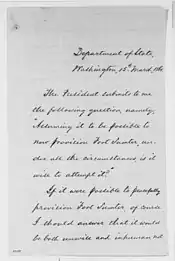 Department of State,
Washington, 15th March, 186
The President submits to me
the following question, namely,
"Assuming it to be possible to
now provision Fort Sumter, un-
der all the circumstances, is it
wise to attempt it?"
If it were possible to peacefully
provision Fort Sumter, of course
I should answer that it would
be both unwise and inhuman not